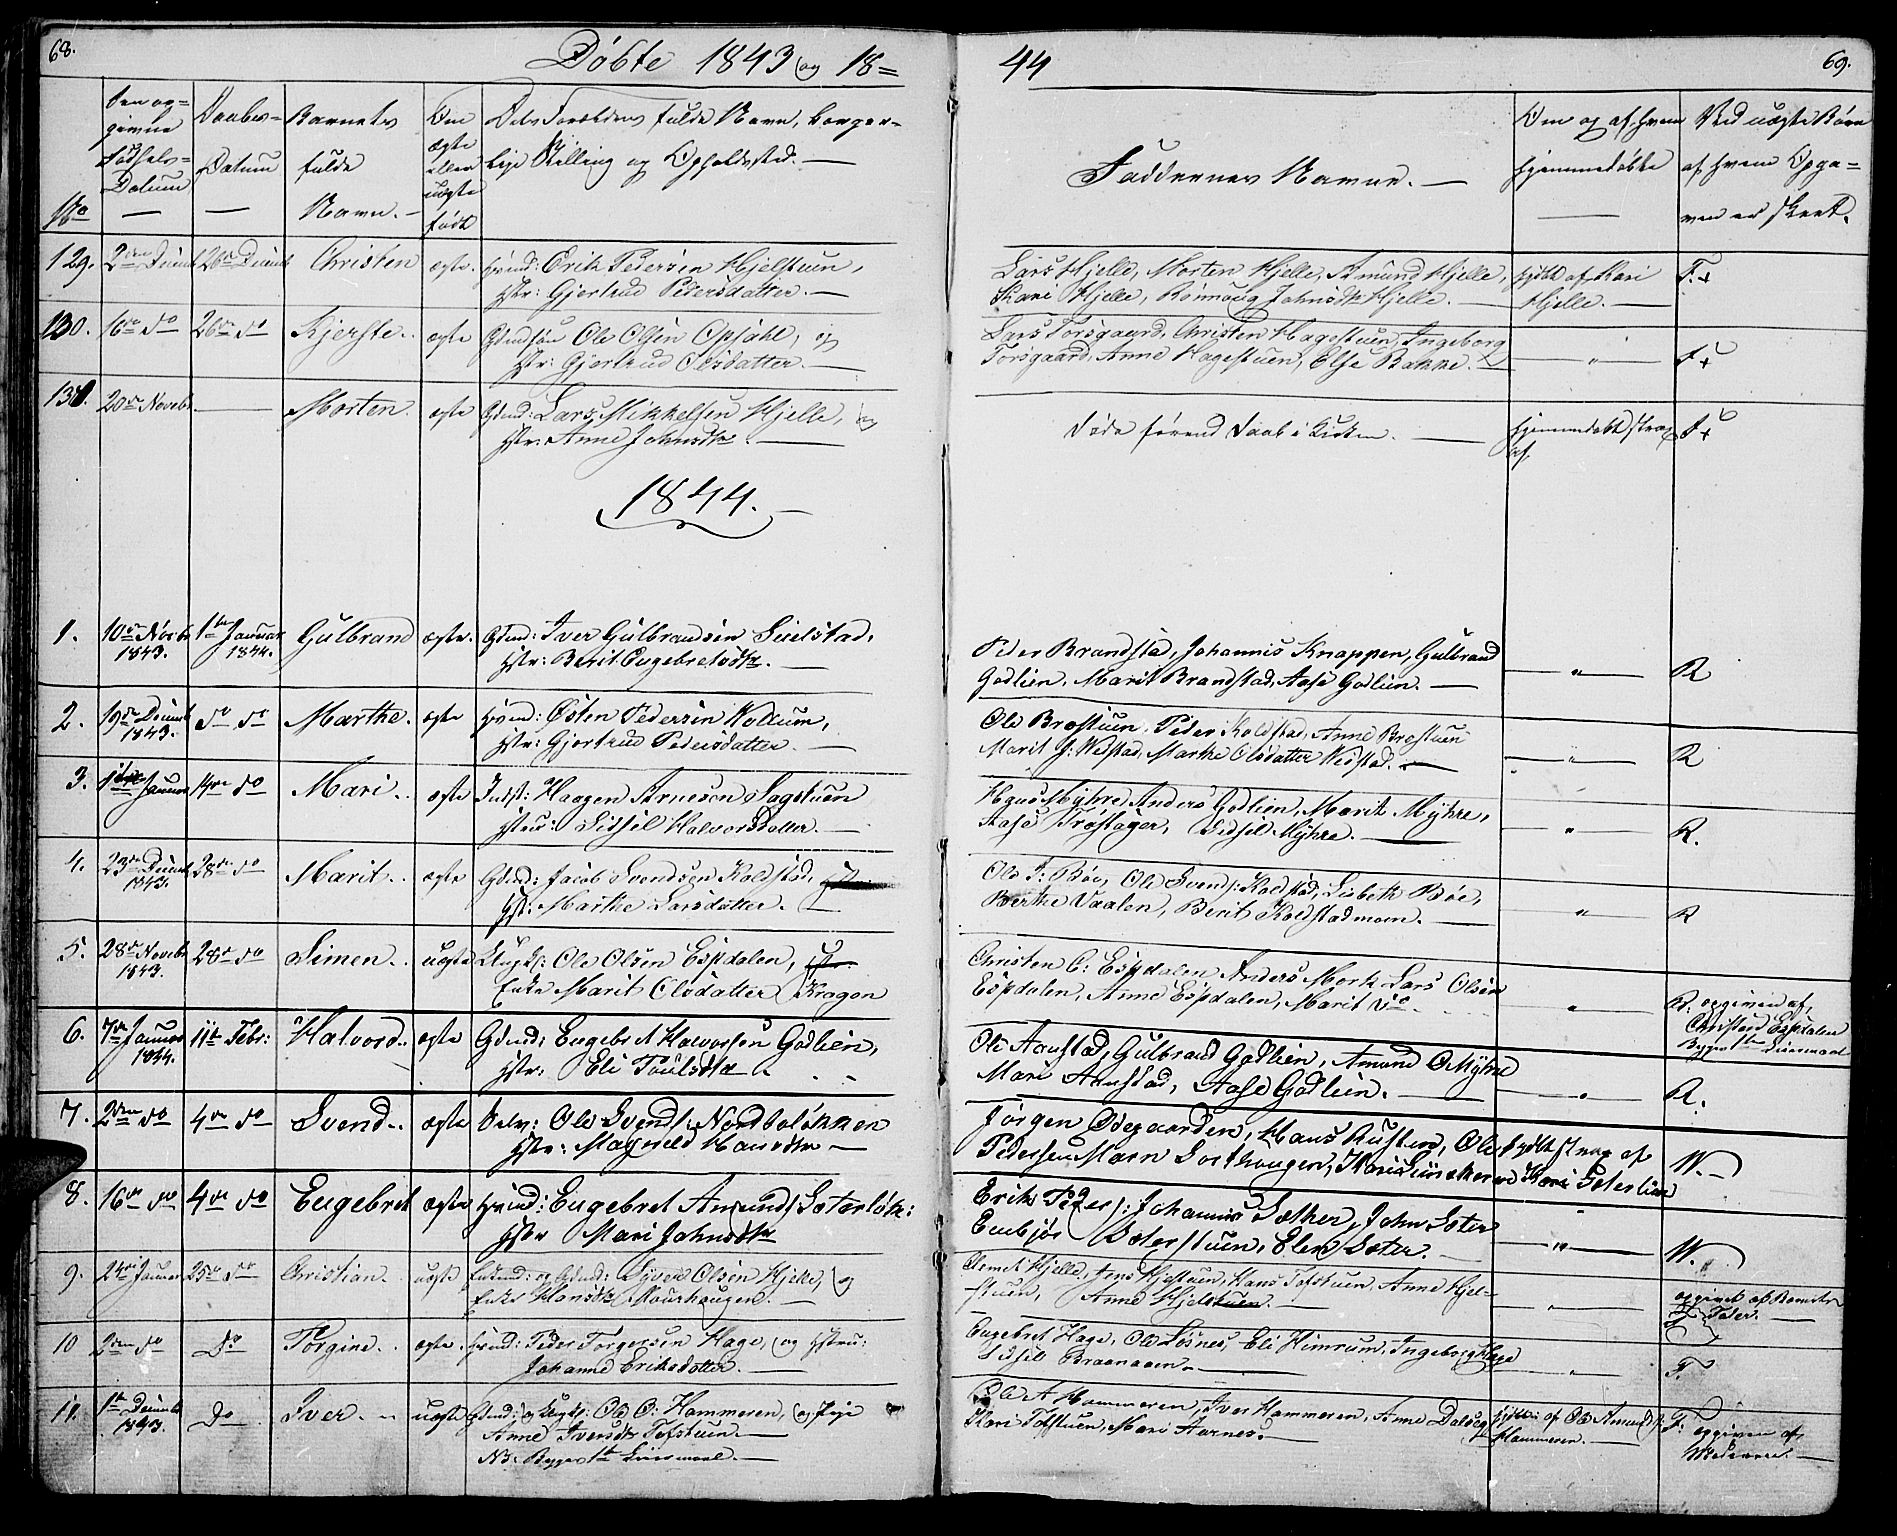 68.
Döbte 1843 og 18=
44
69.
No
Den op=
givne
Födsels=
Datum
Daabes=
Datum
Barnets
fulde
Navn.
Om
ægte
eller
uægte
født
Dets Forældres fulde Navn, borger=
lige Stilling og Opholdssted.
Faddernes Navne.
Om og af hvem
hjemmedøbte
Ved uægte Børn
af hvem Opga=
ven er skeet.
129. 2den Decemb 26de Decemb Christen ægte. Hmd: Erik Pedersen Hjelstuen,
Hstr: Gjertrud Pedersdatter.
Lars Hjelle, Morten Hjelle, Amund Hjelle,
Kari Hjelle, Rönnaug Johnsdtr Hjelle.
hjdbt af Kari
Hjelle.
F.
130. 16de do 26de do Kjerste. ægte Gdmdsön Ole Olsen Opsahl, og
Hstr: Gjertrud Olsdatter.
Lars Forsgaard, Christen Hagestuen, Ingeborg
Forsgaard, Anne Hagestuen, Else Bakke.
F
131. 20de Novebr Morten. ægte Gdmd: Lars Mikkelsen Hjelle, og
Hstr: Anne Johnsdtr.
Döde förend Daab i Kirken.
hjemmedøbt strax
af.
F
1844.
1. 10de Novbr
1843.
1ste Januar
1844.
Gulbrand ægte. Gdmd: Iver Gulbrandsen Lielstad,
Hstr: Berit Engebretsdtr.
Peder Brandstad, Johannis Knappen, Gulbrand
Godlien, Marit Brandstad, Aase Godlien.
R
2. 19de Decemb
1843.
do do Marthe. ægte Hmd: Østen Pedersen Kolluen,
Hstr: Gjertrud Pedersdatter.
Ole Brostuen, Peder Kolstad, Anne Brostuen
Marit J: Vidstad, Marthe Olsdatter Vidstad.
R
3. 1ste Januar 14de do Mari. ægte Indst: Haagen Arnesen Sagstuen
Hstru: Sidsel Halvorsdatter.
Hans Myhre, Anders Godlien, Marit Myhre,
Aase Tröstager, Sidsel Myhre.
R.
4. 23de Decemb
1843.
28de do Marit. ægte Gdmd: Jacob Svendsen Kolstad,
Hst: Marthe Larsdatter.
Ole J: Böe, Ole Svends: Kolstad, Lisbeth Böe,
Berthe Vaalen, Berit Kolstadmoen.
R
5. 28de Novebr
1843.
28de do Simen. uægte Ungk: Ole Olsen Espdalen,
Enke Marit Olsdatter Kragon
Christen C: Espdalen Anders Mork Lars Olsen
Espdalen, Anne Espdalen, Marit do
R. opgiven af
Christen Espdalen
Begges 1ste Leiermaal
6. 7de Januar
1844.
11te Febr: Halvord. ægte Gdmd: Engebret Halvorsen Godlien,
Hstr: Eli Poulsdtr
Ole Aanstad, Gulbrand Godlien, Amund O Myhre
Mari Aanstad, Aase Godlien.
R.
7. 2den do 4de do Svend. ægte Selv: Ole Svends: Nordbolökken
Hstr: Magnild Hansdtr
Jörgen Ödegaarden, Hans Rusten, Ole
Pedersen Moen
hjdbt strax af
Kari Seterlien
W.
8. 16de do 4de do Engebret ægte Hmd: Engebret Amunds: Seterlök:
Hstr Mari Johnsdtr
Erik Peders: Johannis Sæther, John Seter
Embjör Seterstuen, Elen Seter.
W.
9. 24de Januar 25de do Christian. uægte Enkemd: og Gdmd: Syver Olsen Hjelle, og
Enke Hansdtr Maurhaugen.
Clemet Hjelle, Jens Hjelstuen, Hans Tofstuen, Anne Hjel=
stuen, Anne Hjelstuen.
opgivet af Barnets
Fader.
10 2den do Do Torgine. ægte. Hmd: Peder Torgersen Hage, og Hstru:
Johanne Eriksdatter.
Engebret Hage, Ole Losnes, Eli Himrum, Ingeborg Hage
Sidsel Braenaaen.
F.
11. 1ste Decemb
1843.
Do Iver. uægte Gdmd: og Ungk: Ole O: Hammeren, og Pige
Anne Iversdtr Tofstuen.
NB. Begges 1ste Leiermaal.
Ole A Hammeren, Iver Hammeren, Anne Dalseg
Kari Tofstuen, Mari Aarnes.
hjdbt: af Ole Amunds:
Hammeren.
F. opgiven af
Moderen.